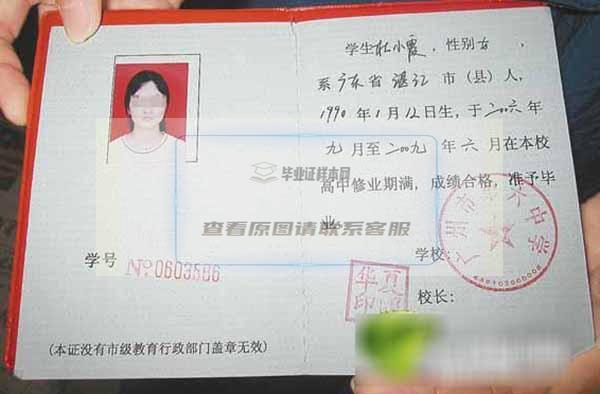 学生杜小霞，性别女，
系广东省湛江市（县）人，
1990年1月12日生，于二〇〇六年
九月至二〇〇九年六月在本校
高中修业期满，成绩合格，准予毕
业
毕业证样本网
查看原图请联系客服
学号
№0603586
学校：
校长：
华夏
印
(本证没有市级教育行政部门盖章无效)